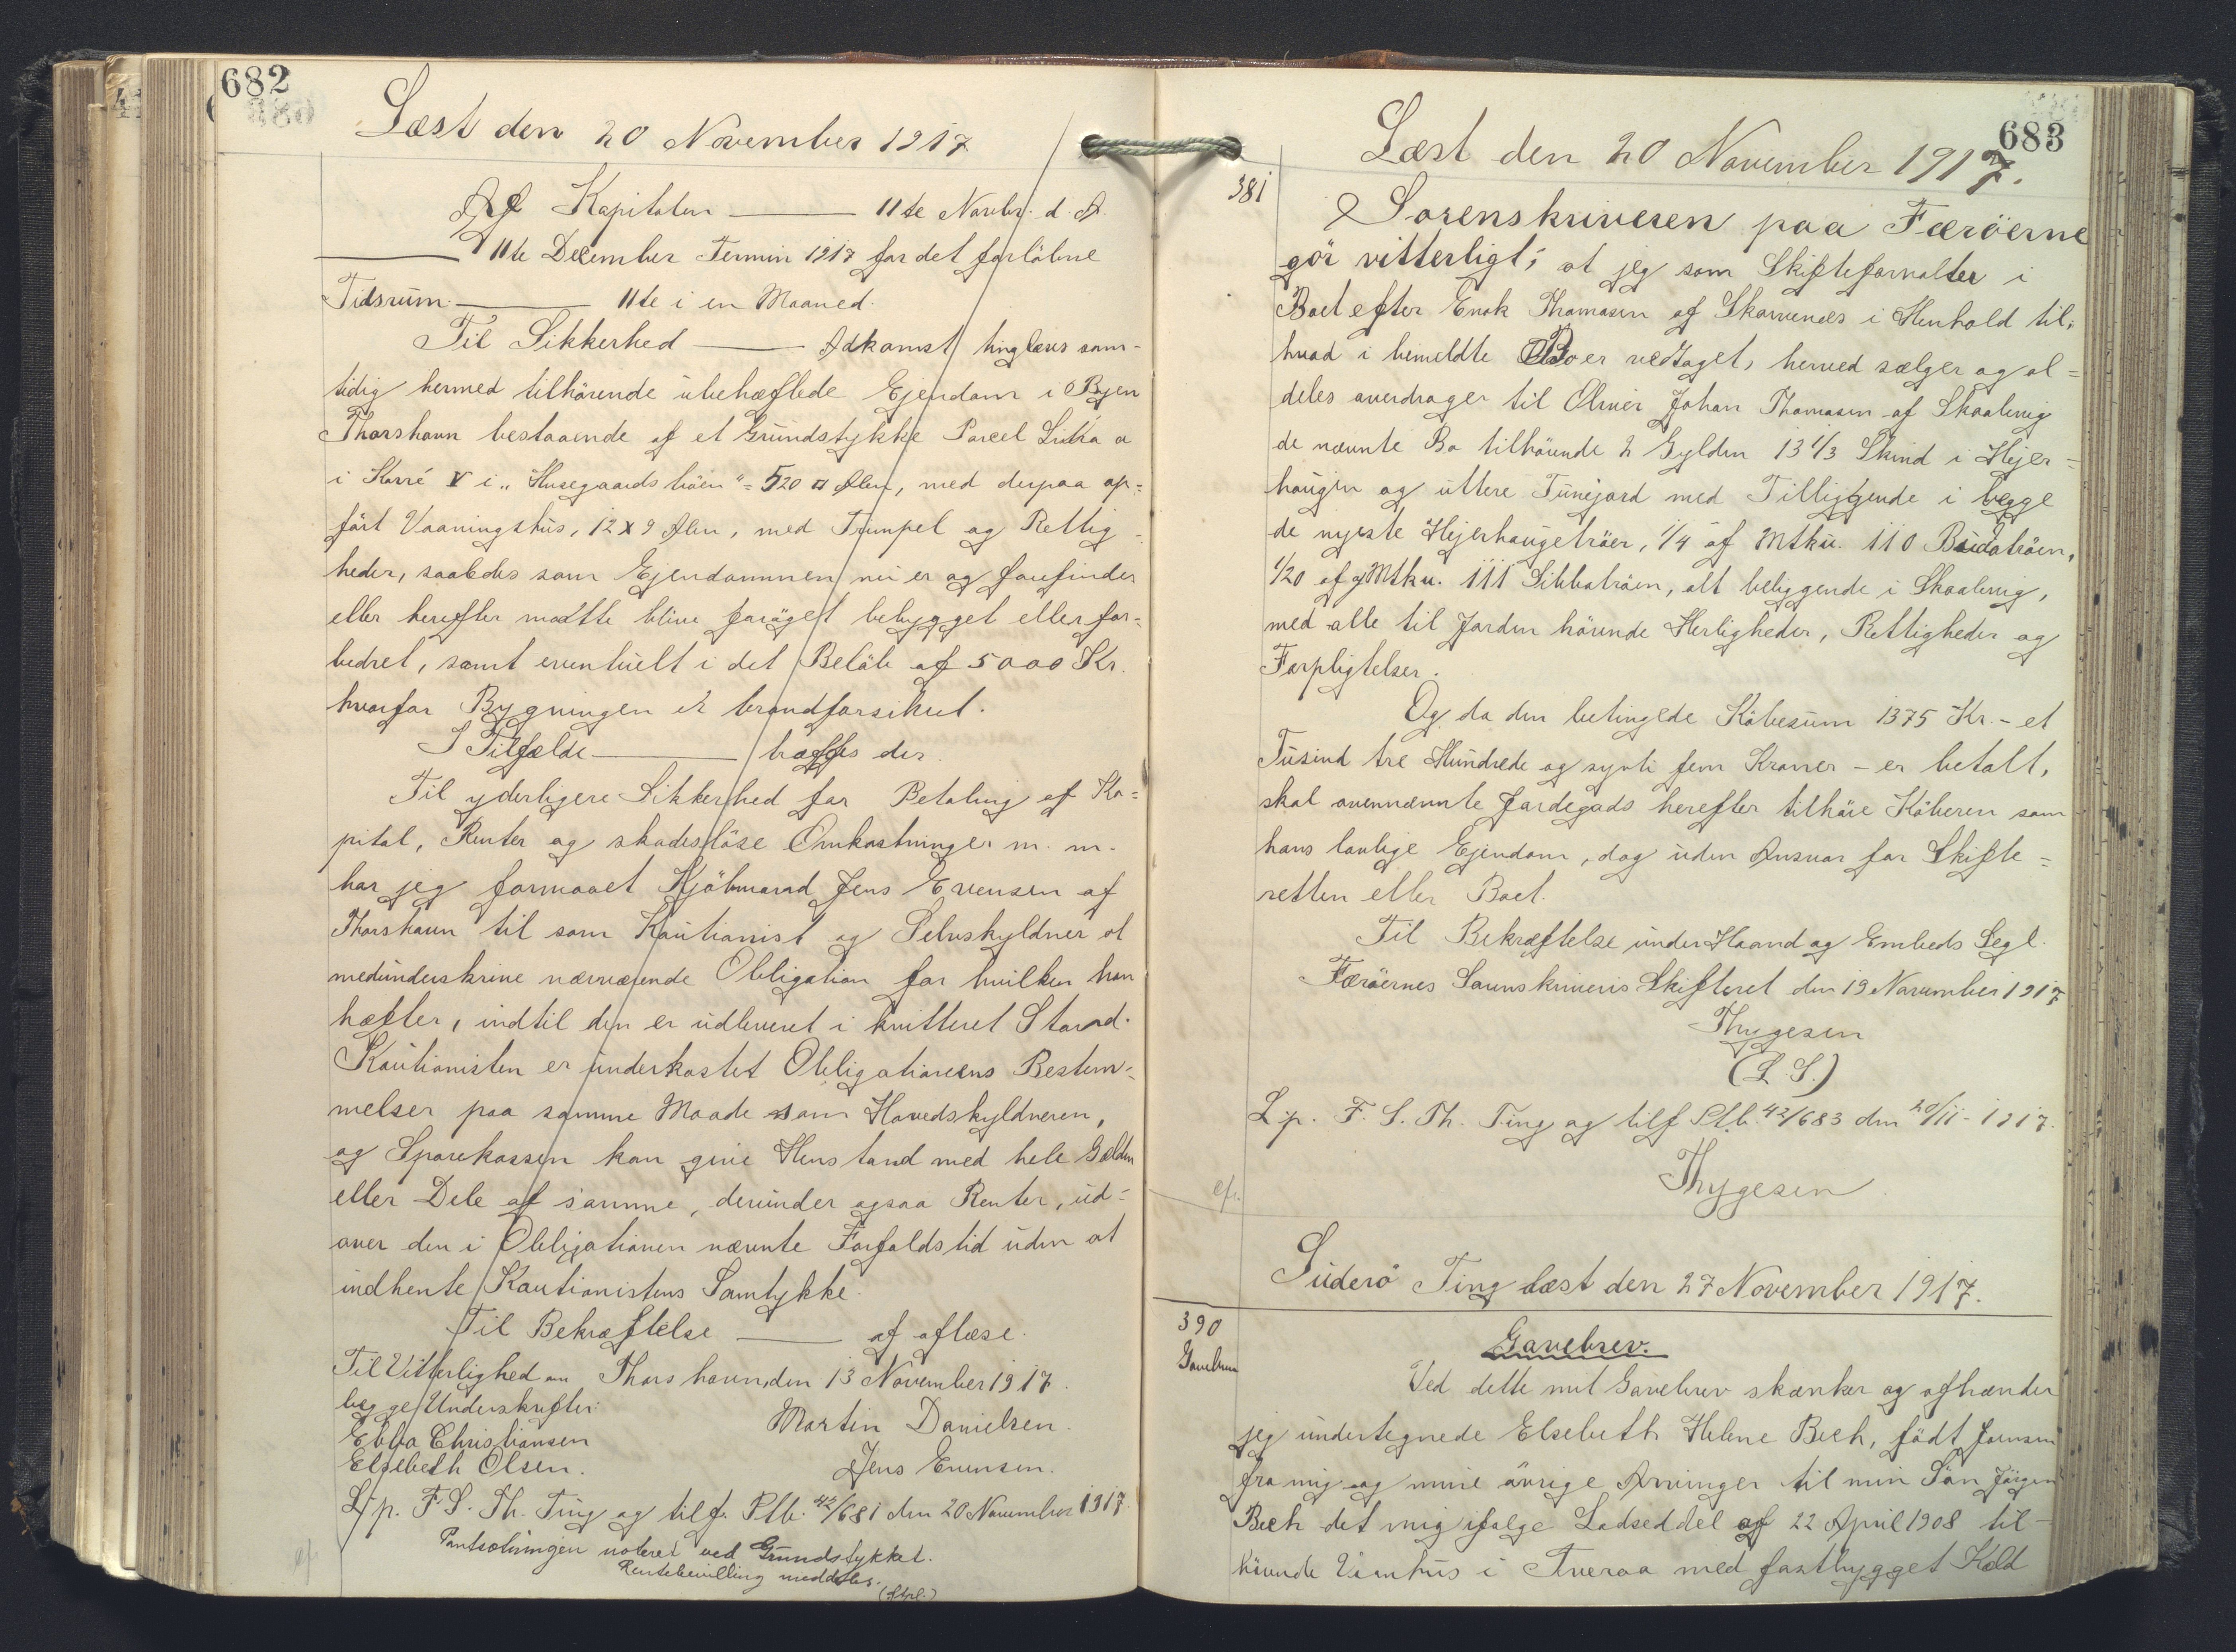 682
Læst den 20 November 1917
Af Kapitalen — 11te Novbr. d. A.
— 11te December Termin 1917 for det forløbne
Tidsrum — 11te i en Maaned.
Til Sikkerhed — Adkomst tinglæses sam-
tidig hermed tilhörende ubehæftede Ejendom i Byen
Thorshavn bestaaende af et Grundstykke Parcel Litra a
i Karré V i „Husegaards tröen" = 520 □ Alen, med derpaa op-
fört Vaaningshus, 12 x 9 Alen, med Trumpel og Rettig-
heder, saaledes som Ejendommen nu er og forefindes
eller herefter maatte blive foröget bebygget eller for-
bedret, samt eventuelt i det Belöb af 5000 Kr.
hvorfor Bygningen er brandforsikret.
I Tilfælde — træffes der.
Til yderligere Sikkerhed for Betaling af Ka-
pital, Renter og skadeslöse Omkostninger m. m.
har jeg formaaet Kjöbmand Jens Evensen af
Thorshavn til som Kautionist og Selvskyldner at
medunderskrive nærværende Obligation for hvilken han
hæfter, indtil den er udleveret i kvitteret Stand.
Kautionisten er underkastet Obligationens Bestem-
melser paa samme Maade som Hovedskyldneren,
og Sparekassen kan give Henstand med hele Gælden
eller Dele af samme, derunder ogsaa Renter, ud-
over den i Obligationen nævnte Forfaldstid uden at
indhente Kautionistens Samtykke.
Til Bekræftelse — af aflæse.
Til Vitterlighed om Thorshavn, den 13 November 1917.
begge Underskrifter:
Martin Danielsen.
Ebba Christiansen
Elsebeth Olsen.
Jens Evensen.
L. p. F. S. Th. Ting og tilf. Ptb. 42/681 den 20 November 1917.
Pantsætningen noteret ved Grundstykket.
Rentebevilling meddeles.
cfr.
683
Læst den 20 November 1917.
381
Sorenskriveren paa Færöerne
gör vitterligt; at jeg som Skifteforvalter i
Boet efter Enok Thomasen af Skarvenæs i Henhold til,
hvad i bemeldte Bo er vedtaget, herved sælger og al-
deles overdrager til Oliver Johan Thomasen af Skaalevig
de nævnte Bo tilhörende 2 Gylden 13 1/3 Skind i Hejer-
haugen og uttere Tunejord med Tilliggende i begge
de nyeste Hejerhaugetröer, 1/4 af Mtku. 110 Budatröen,
1/20 af Mtku. 111 Sibbatröen, alt beliggende i Skaalevig,
med alle til Jorden hörende Herligheder, Rettigheder og
Forpligtelser.
Og da den betingede Köbesum 1375 Kr. - et
Tusind tre Hundrede og syvti fem Kroner - er betalt,
skal ovennævnte Jordegods herefter tilhöre Köberen som
hans lovlige Ejendom, dog uden Ansvar for Skifte-
retten eller Boet.
Til Bekræftelse under Haand og Embeds Segl.
Færöernes Sorenskriveris Skifteret den 19 November 1917
Thygesen
(L. S.)
L. p. F. S. Th. Ting og tilf. Ptb. 42/683 den 20/11 - 1917.
Thygesen
cfr.
Suderö Ting læst den 27 November 1917.
390
Gavebrev
Gavebrev.
Ved dette mit Gavebrev skænker og afhænder
jeg undertegnede Elsebeth Helene Bech, födt Joensen
fra mig og mine övrige Arvinger til min Sön Jörgen
Bech det mig ifölge Lodseddel af 22 April 1908 til-
hörende Vaanhus i Tveraa med fasthygget Kold